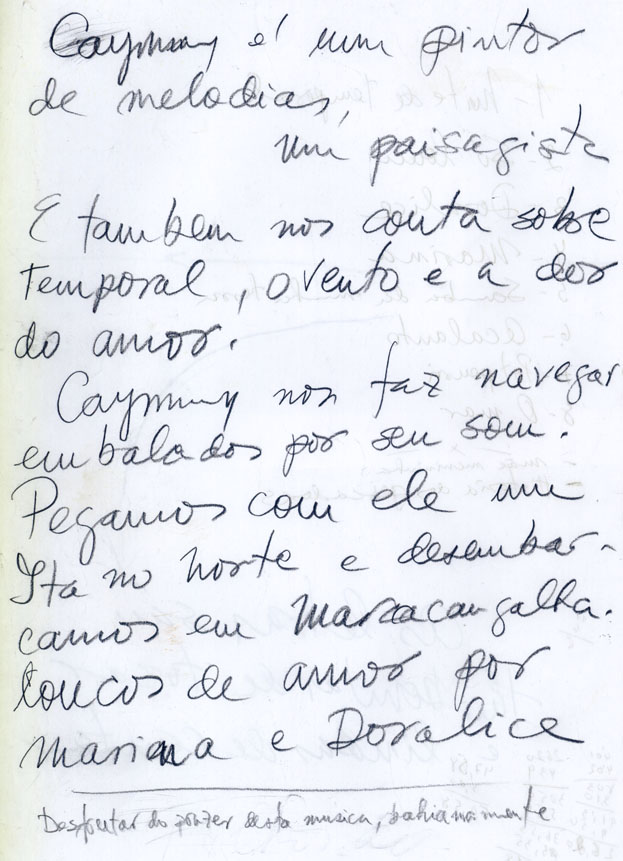 Caymmy é um pintor
de melodias,
um paisagista
E tambem nos conta sobre
temporal, o vento e a dor
do amor.
Caymmy nos faz navegar
embalados por seu som.
Pegamos com ele um
Ita no norte e desembar-
camos em Maracangalha.
loucos de amor por
Marina e Doralice
Desfrutar do prazer desta musica, bahianamente